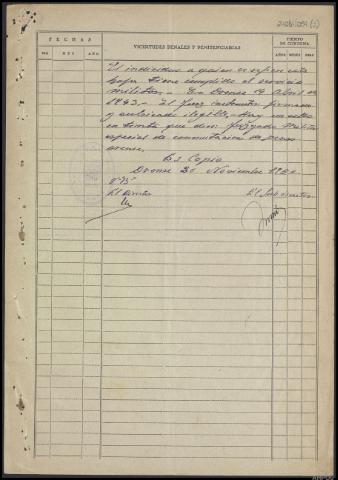 FECHAS
VICISITUDES PENALES Y PENITENCIARIAS
TIEMPO DE CONDENA
DIA MES AÑO
AÑOS MESES DIAS
El individuo a quien se refiere esta
hoja tiene cumplido el servicio
militar.- En Orense 14 Abril de
1943.- El Juez instructor firmado
y rubricado ilegible.- Hay un sello
en tinta que dice: Juzgado Militar
especial de conmutación de penas
Orense.
Es Copia
Orense 20 Noviembre
VºBº
El Director
El Subdirector